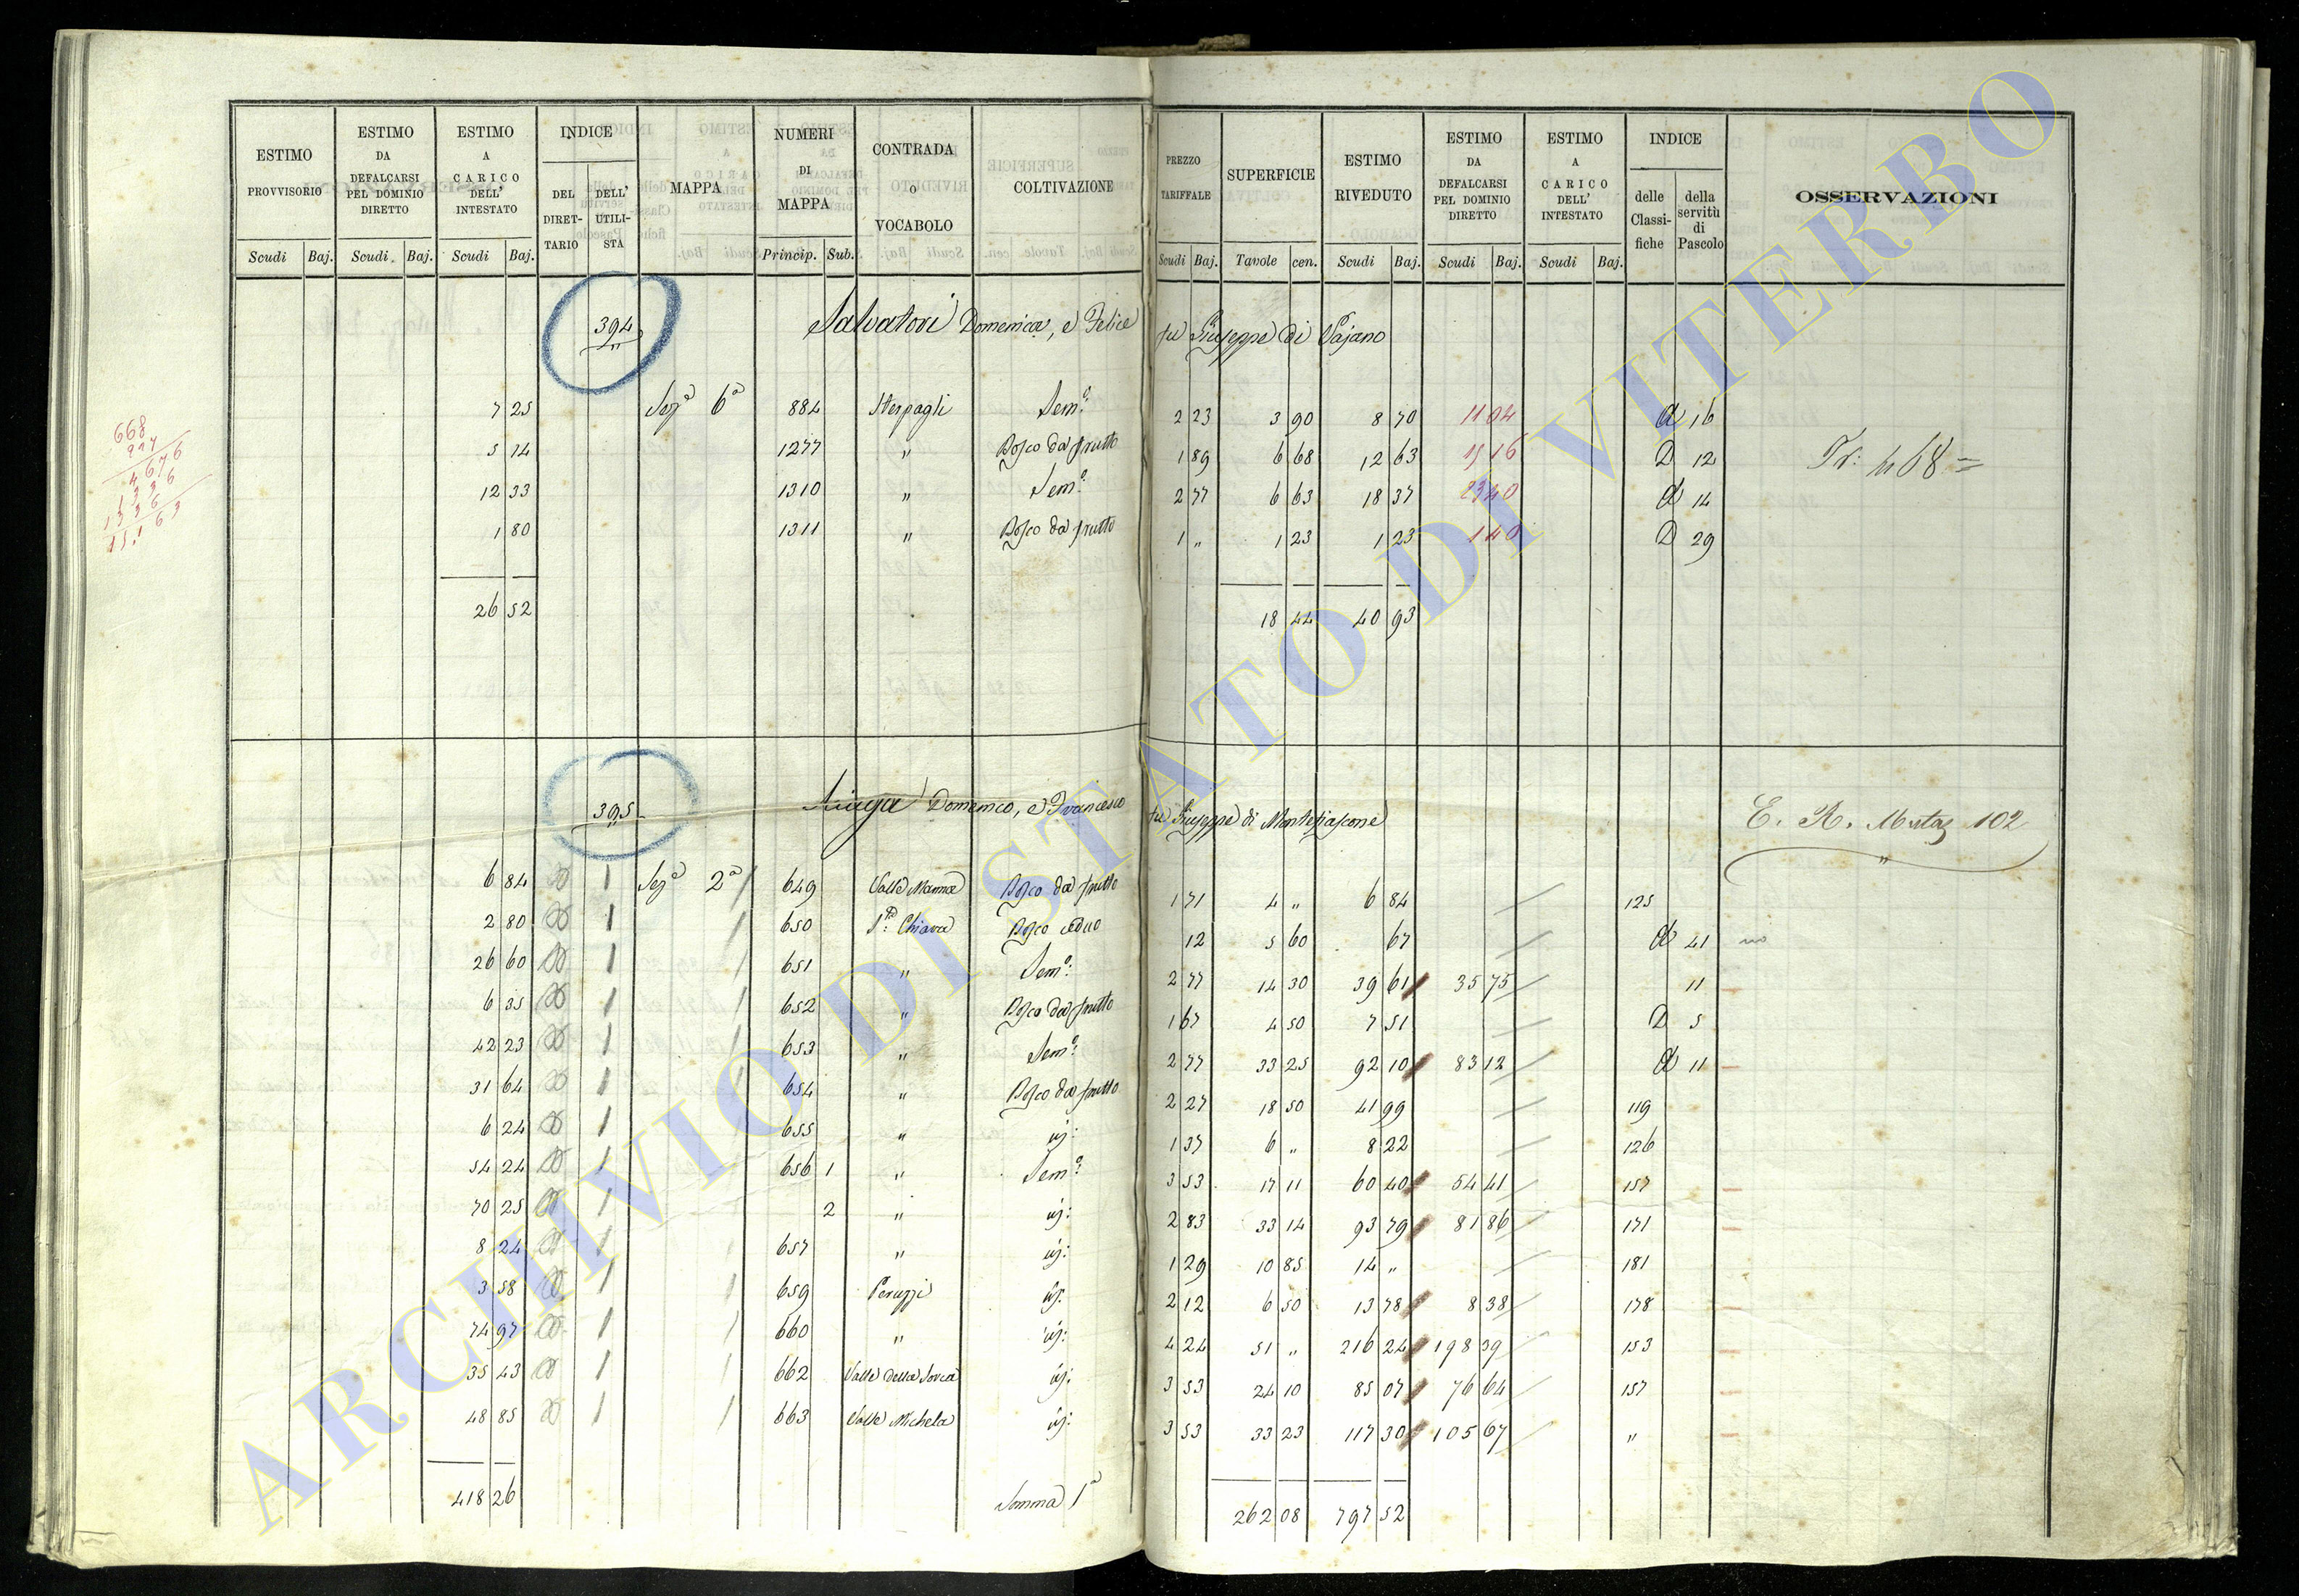 ESTIMO PROVVISORIO | ESTIMO DA DEFALCARSI PEL DOMINIO DIRETTO | ESTIMO A CARICO DELL' INTESTATO | INDICE | MAPPA | NUMERI DI MAPPA | CONTRADA O VOCABOLO | COLTIVAZIONE | PREZZO TARIFFALE | SUPERFICIE | ESTIMO RIVEDUTO | ESTIMO DA DEFALCARSI PEL DOMINIO DIRETTO | ESTIMO A CARICO DELL' INTESTATO | INDICE | OSSERVAZIONI
DEL DIRETTARIO | DELL' UTILISTA | delle Classifiche | della servitù di Pascolo
Scudi Baj. | Scudi Baj. | Scudi Baj. | Princip. Sub. | Scudi Baj. | Tavole cen. | Scudi Baj. | Scudi Baj. | Scudi Baj.
394 Salvatori Domenica, e Felice fu Giuseppe di Vajano
7 25 Sez.ª 6ª 884 Sterpagli Sem.º 2 23 3 90 8 70 11 04 d 16
5 14 1277 " Bosco da frutto 1 89 6 68 12 63 15 16 D 12 Tr: 468 =
12 33 1310 " Sem.º 2 77 6 63 18 37 23 40 d 14
1 80 1311 " Bosco da frutto 1 " 1 23 1 23 1 40 D 29
26 52 18 44 40 93
668
227
4676
1336
1336
151.63
395 Domenico, e Francesco fu Giuseppe di Montefiascone E. R. 102
6 84 1 Sez.ª 2ª 649 Valle Manna Bosco da frutto 1 71 4 " 6 84 125
2 80 1 650 S.ª Chiara Bosco ceduo 12 5 60 67 d 41 no
26 60 1 651 " Sem.º: 2 77 14 30 39 61 35 75 11
6 35 1 652 " Bosco da frutto 1 67 4 50 7 51 D 5
42 23 1 653 " Sem.º: 2 77 33 25 92 10 83 12 d 11
31 64 1 654 " Bosco da frutto 2 27 18 50 41 99 119
6 24 1 655 " id: 1 37 6 " 8 22 126
54 24 1 656 1 " Sem.º: 3 53 17 11 60 40 54 41 157
70 25 1 2 " id: 2 83 33 14 93 79 81 86 171
8 24 1 657 " id: 1 29 10 85 14 " 181
3 58 1 659 Peruzzi id: 2 12 6 50 13 78 8 38 178
74 97 1 660 " id: 4 24 51 " 216 24 198 39 153
35 43 1 662 Valle della id: 3 53 24 10 85 07 76 64 157
48 85 1 663 Valle Michela id: 3 53 33 23 117 30 105 67 "
418 26 Somma 1ª 262 08 797 52
ARCHIVIO DI STATO DI VITERBO